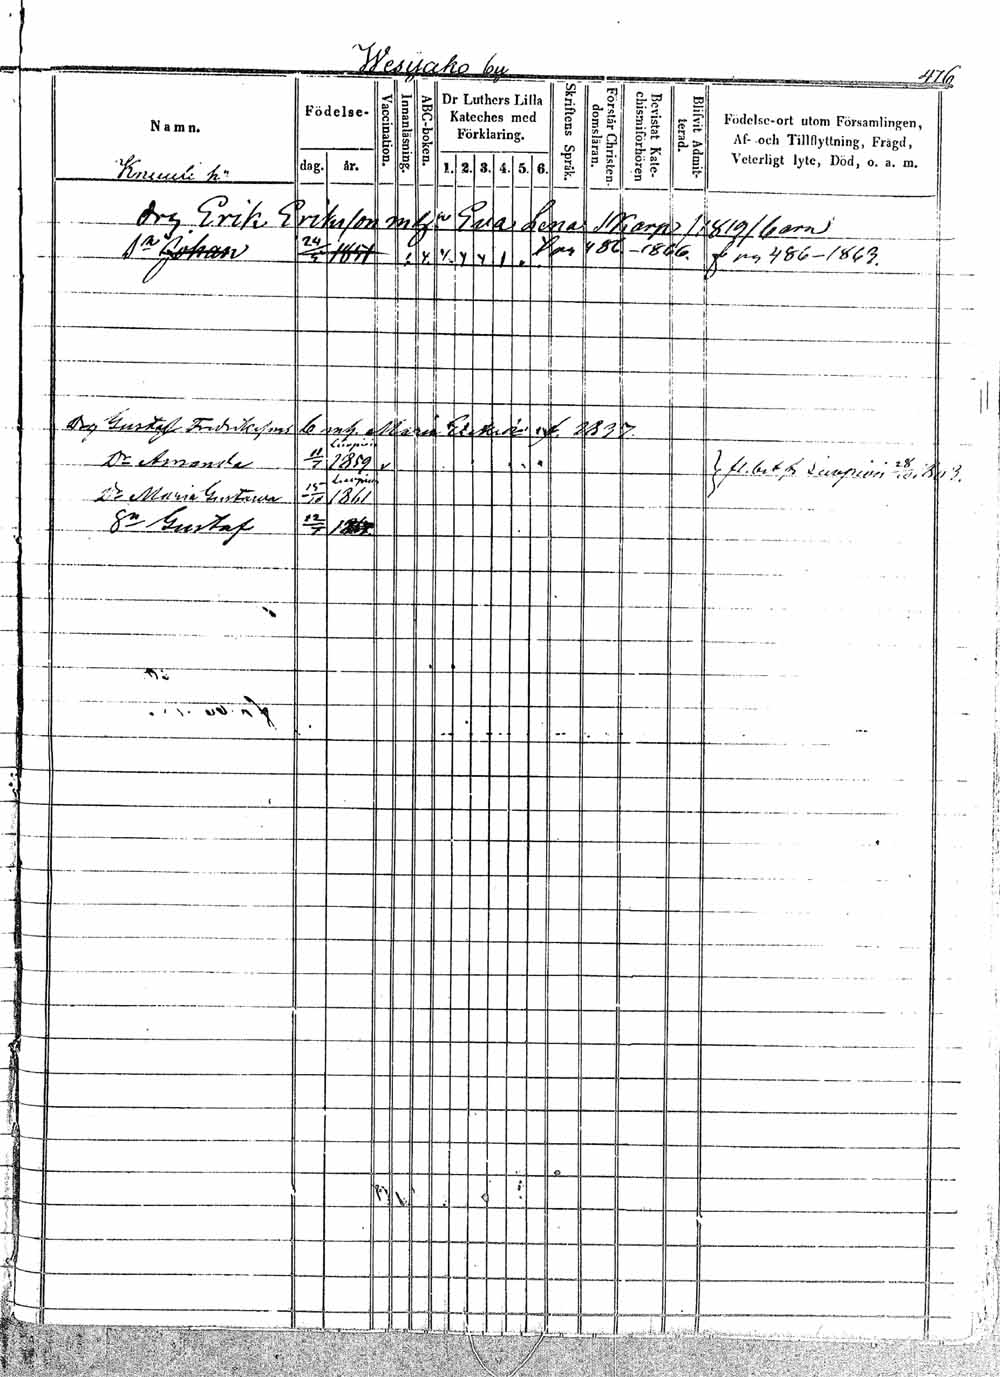 Wesijako by
476
Namn.
Födelse-
dag. år.
Vaccination.
Innanläsning.
ABC-boken.
Dr Luthers Lilla
Kateches med
Förklaring.
1. 2. 3. 4. 5. 6.
Skriftens Språk.
Förstår Christen-
domsläran.
Bevistat Kate-
chismiförhören
Blifvit Admit-
terad.
Födelse-ort utom Församlingen,
Af- och Tillflyttning, Frägd,
Veterligt lyte, Död, o. a. m.
Drg Erik Eriksson m hu Eva Lena Skarp f. 1819 / barn
Sn Johan 24/5 1851 pag 486 - 1866. fr pag 486 - 1863.
Drg Gustaf Fredriksson m h. Maria f. 1837
Dr Amanda 11/7 1859
Dr Maria Gustawa 15/10 1861
Sn Gustaf 12/7